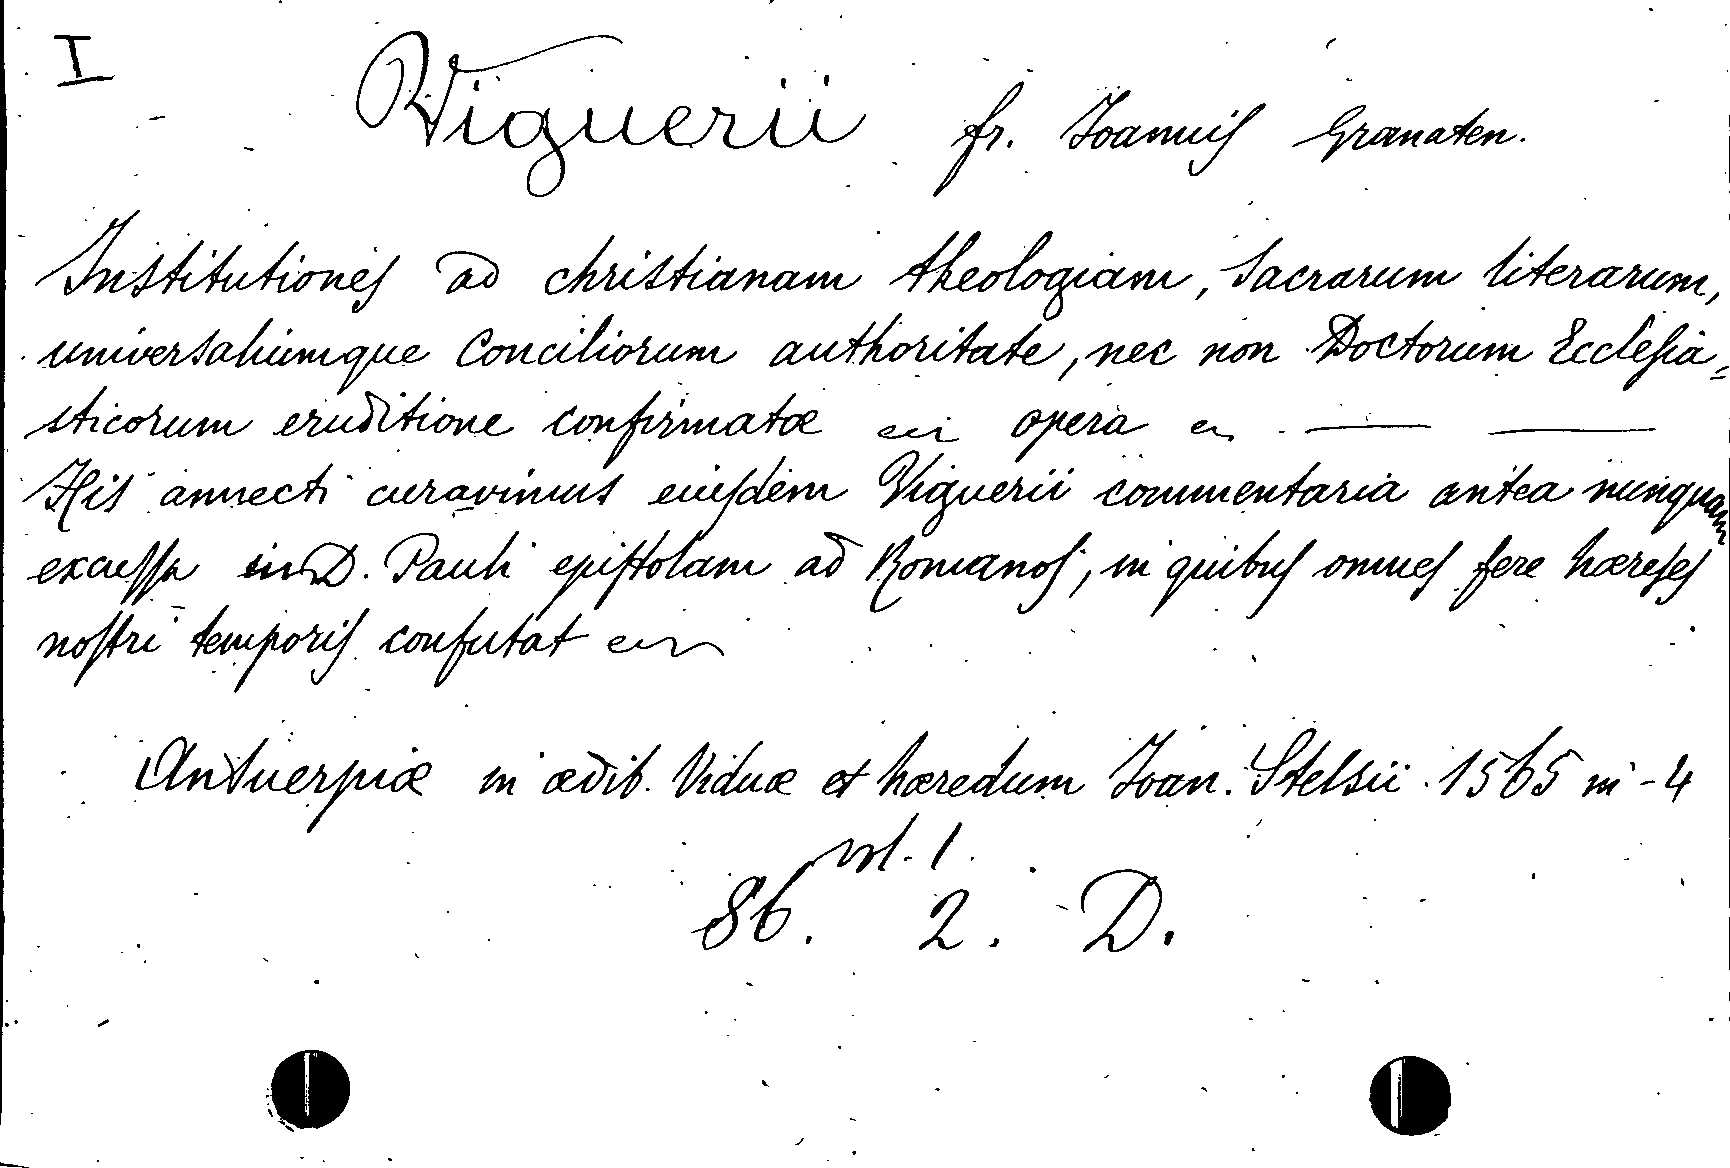 I
Viguerii fr. Joannis Granaten.
Institutiones ad christianam theologiam, sacrarum literarum,
universaliumque Conciliorum authoritate, nec non Doctorum Ecclesia=
sticorum eruditione confirmatæ opera
His annecti curavimus eiusdem Viguerii commentaria antea nunquam
excussa in D. Pauli epistolam ad Romanos, in quibus omnes fere hæreses
nostri temporis confutat
Antuerpiæ in ædib. Viduæ et hæredum Joan. Stelsii. 1565 in-4
vol. 1.
86. 2. D.